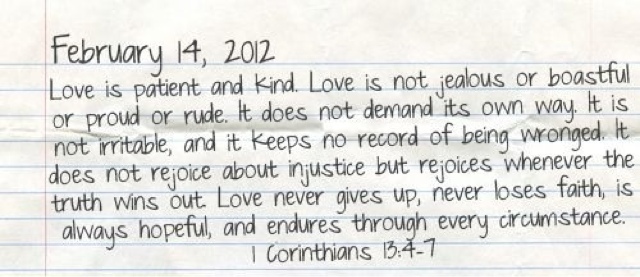 February 14, 2012
Love is patient and kind. Love is not jealous or boastful
or proud or rude. It does not demand its own way. It is
not irritable, and it keeps no record of being wronged. It
does not rejoice about injustice but rejoices whenever the
truth wins out. Love never gives up, never loses faith, is
always hopeful, and endures through every circumstance.
1 Corinthians 13:4-7